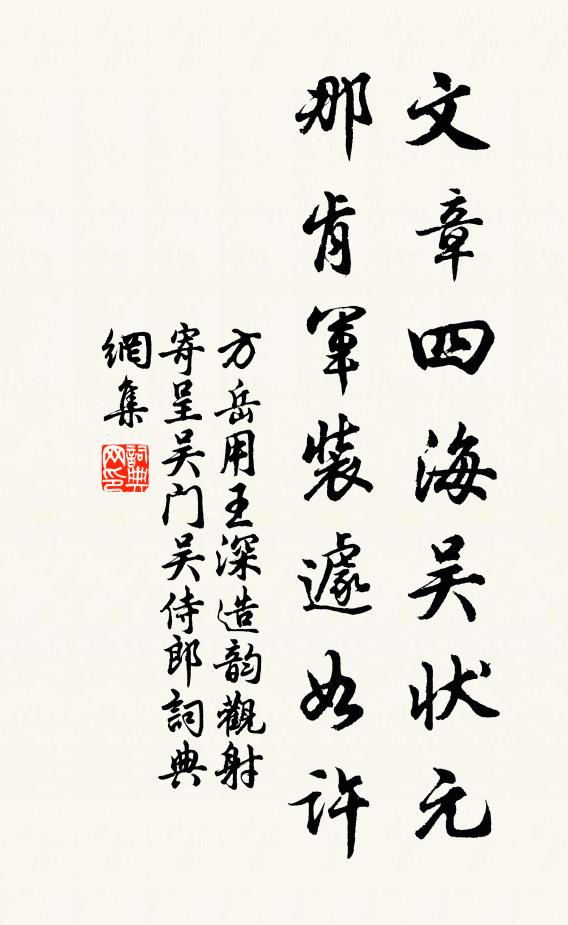 文章四海吴状元
那肯军装遽如许
方岳用王深造韵觀射
寄呈吴门吴侍郎詞典
網集
詞典
网印